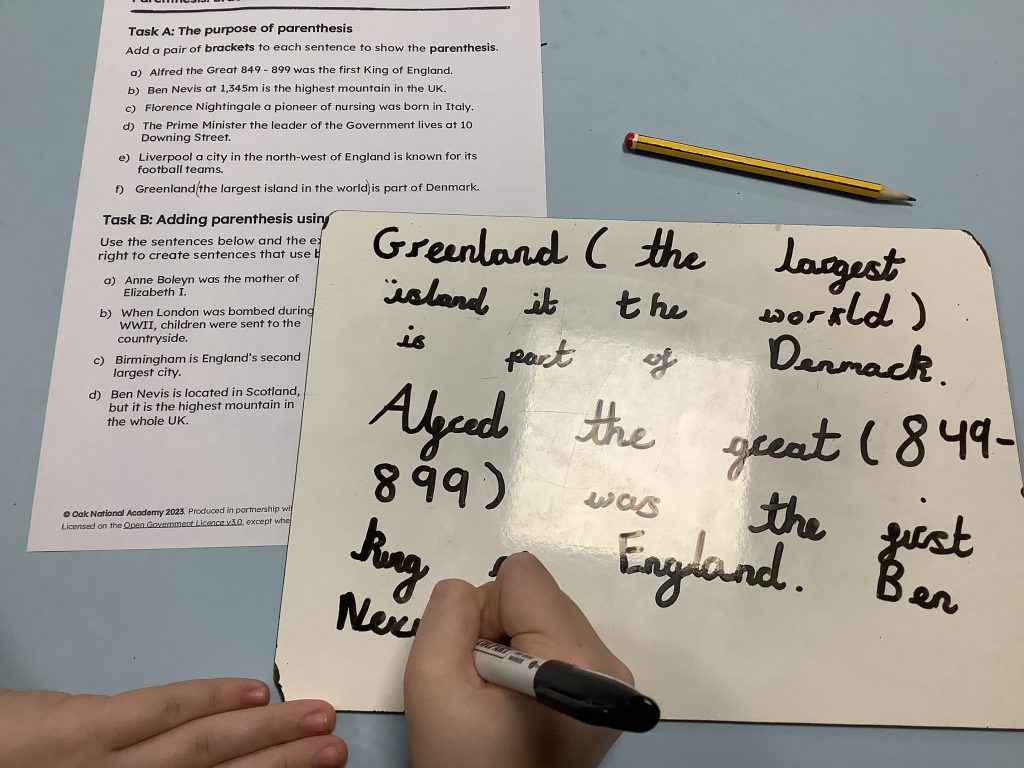 Task A: The purpose of parenthesis
Add a pair of brackets to each sentence to show the parenthesis.
a) Alfred the Great 849 - 899 was the first King of England.
b) Ben Nevis at 1,345m is the highest mountain in the UK.
c) Florence Nightingale a pioneer of nursing was born in Italy.
d) The Prime Minister the leader of the Government lives at 10
Downing Street.
e) Liverpool a city in the north-west of England is known for its
football teams.
f) Greenland(the largest island in the world)is part of Denmark.
Task B: Adding parenthesis using
Use the sentences below and the
right to create sentences that use
a) Anne Boleyn was the mother of
Elizabeth I.
b) When London was bombed during
WWII, children were sent to the
countryside.
c) Birmingham is England's second
largest city.
d) Ben Nevis is located in Scotland,
but it is the highest mountain in
the whole UK.
© Oak National Academy 2023. Produced in partnership
Licensed on the Open Government Licence v3.0, except
Greenland ( the largest
island it the world )
is part of Denmack.
Algced the gceat ( 849-
899 ) was the girst
King England. Ben